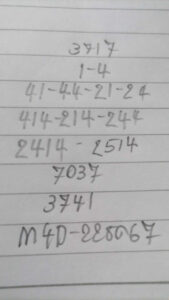 3717
1-4
41-44-21-24
414-214-244
2414 - 2514
7037
3741
M4D-225067